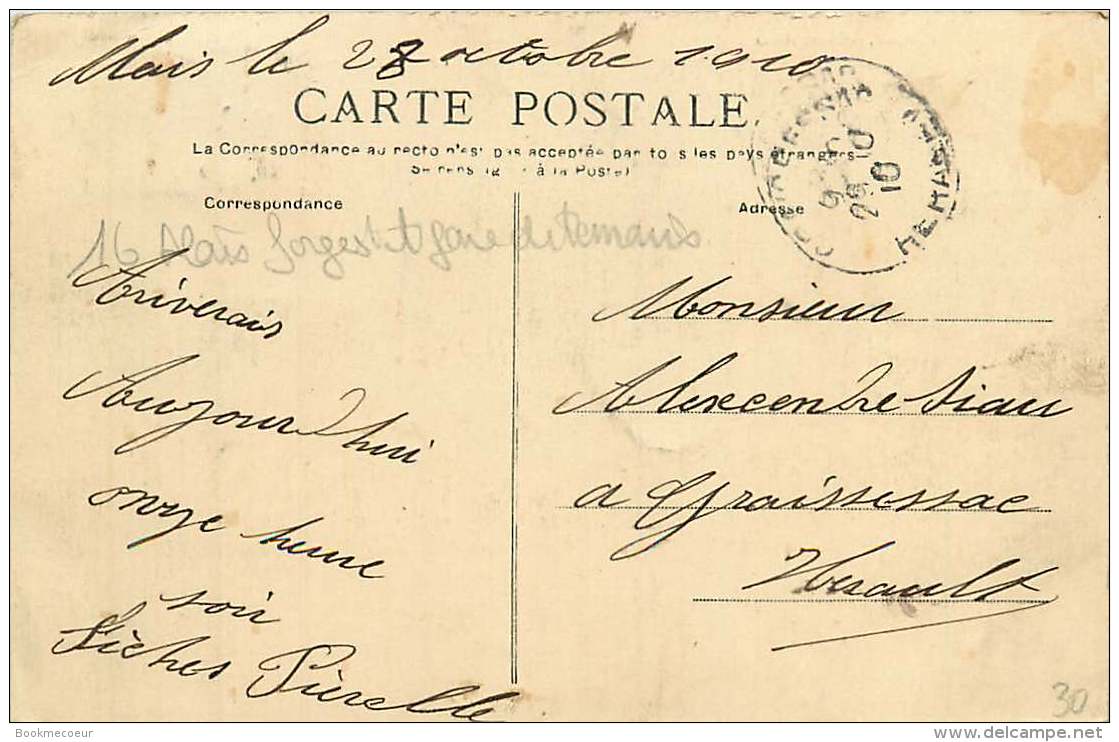 Alais le 28 octobre 1910
CARTE POSTALE
La Correspondance au recto n'est pas acceptée par tous les pays étrangers
à la Poste)
Correspondance
Adresse
GRAISSESSAC
HERAULT
29
10
16 Alais forges et gare de
Ariverais
Aujourd'hui
onze heure
soir
Monsieur
Alexcendre Siau
a Graissessac
Herault
30
Bookmecoeur
delcampe.net